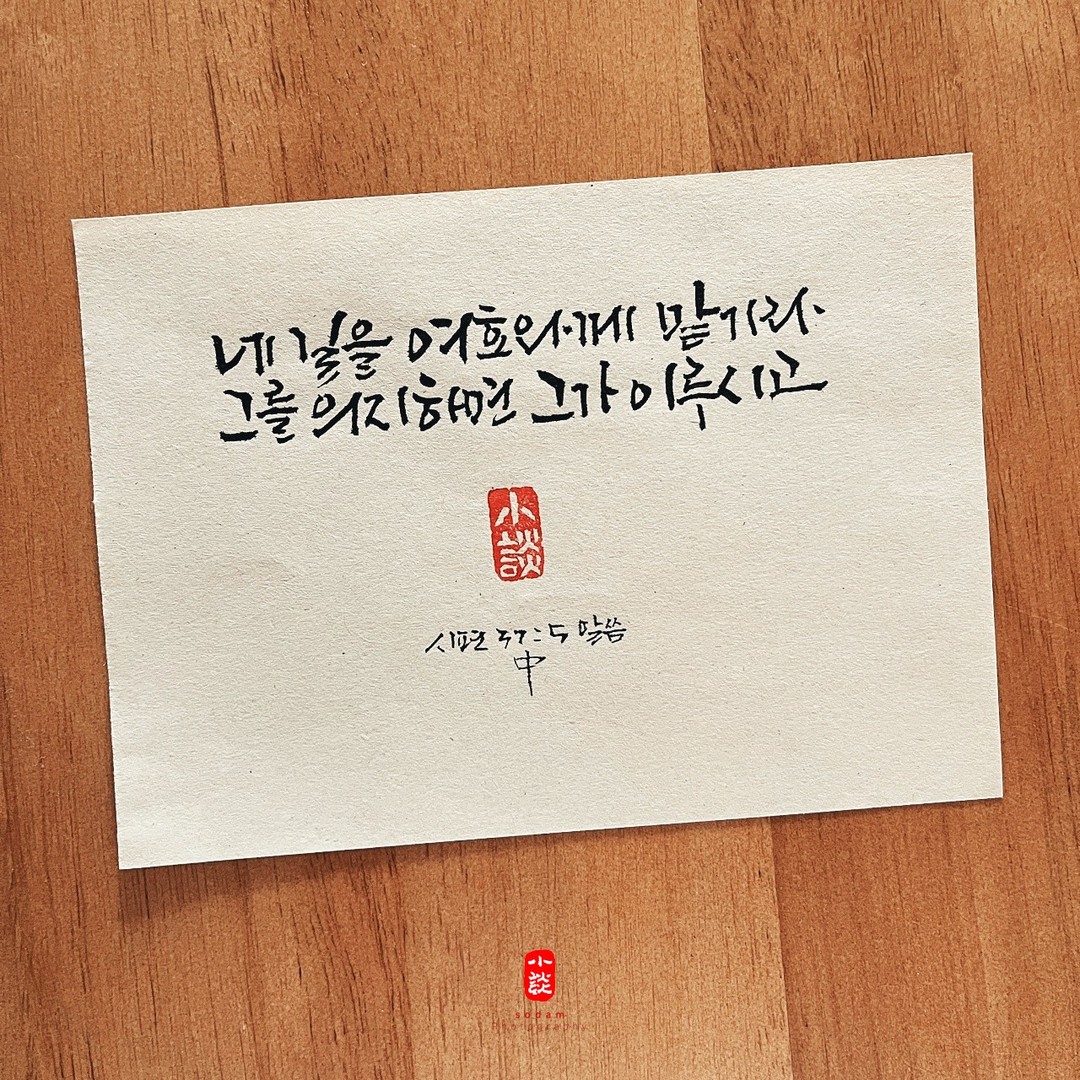 네 길을 여호와께 맡기라
그를 의지하면 그가 이루시고
小談
시편 37:5 말씀
中
小談
sodam
Photography